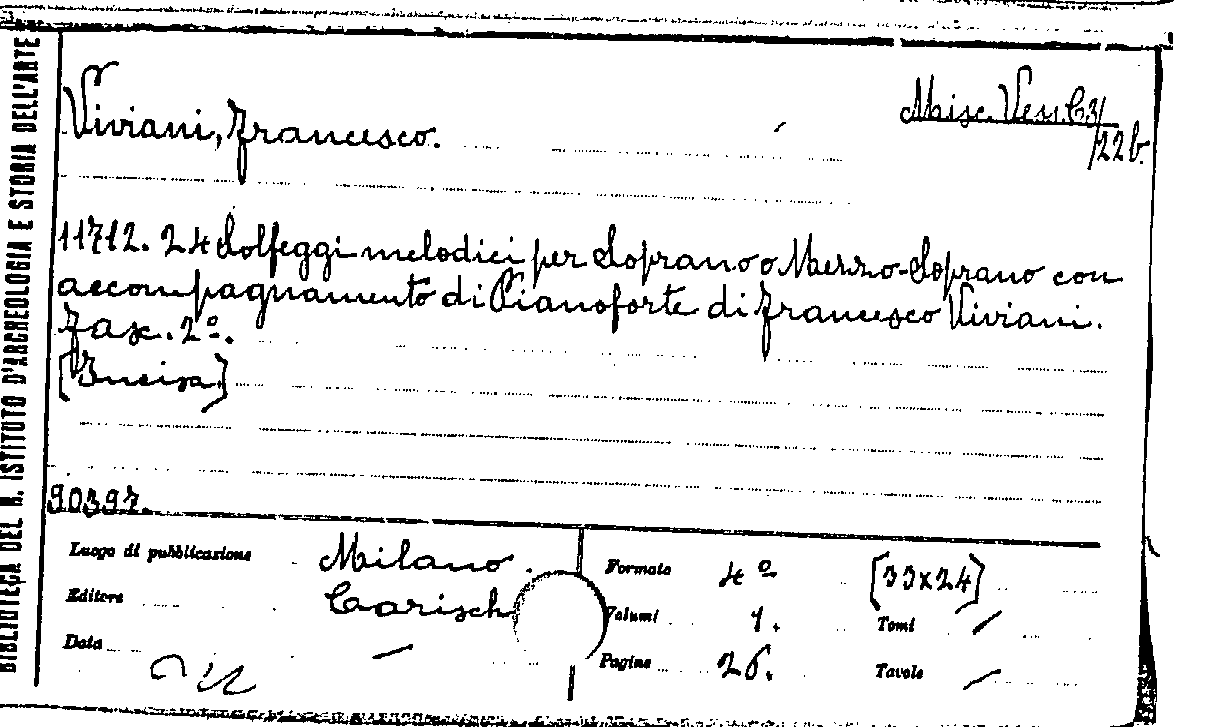 BIBLIOTECA DEL R. ISTITUTO D'ARCHEOLOGIA E STORIA DELL'ARTE
Viviani, Francesco.
Misc. Vess. C3/22b.
11712. 24 Solfeggi melodici per Soprano o Mezzo-Soprano con
accompagnamento di Pianoforte di Francesco Viviani.
Fasc. 2º.
[Incisa]
90397.
Luogo di pubblicazione Milano.
Editore Carisch
Data —
Formato 4º [33x24]
Volumi 1. Tomi /
Pagine 26. Tavole /